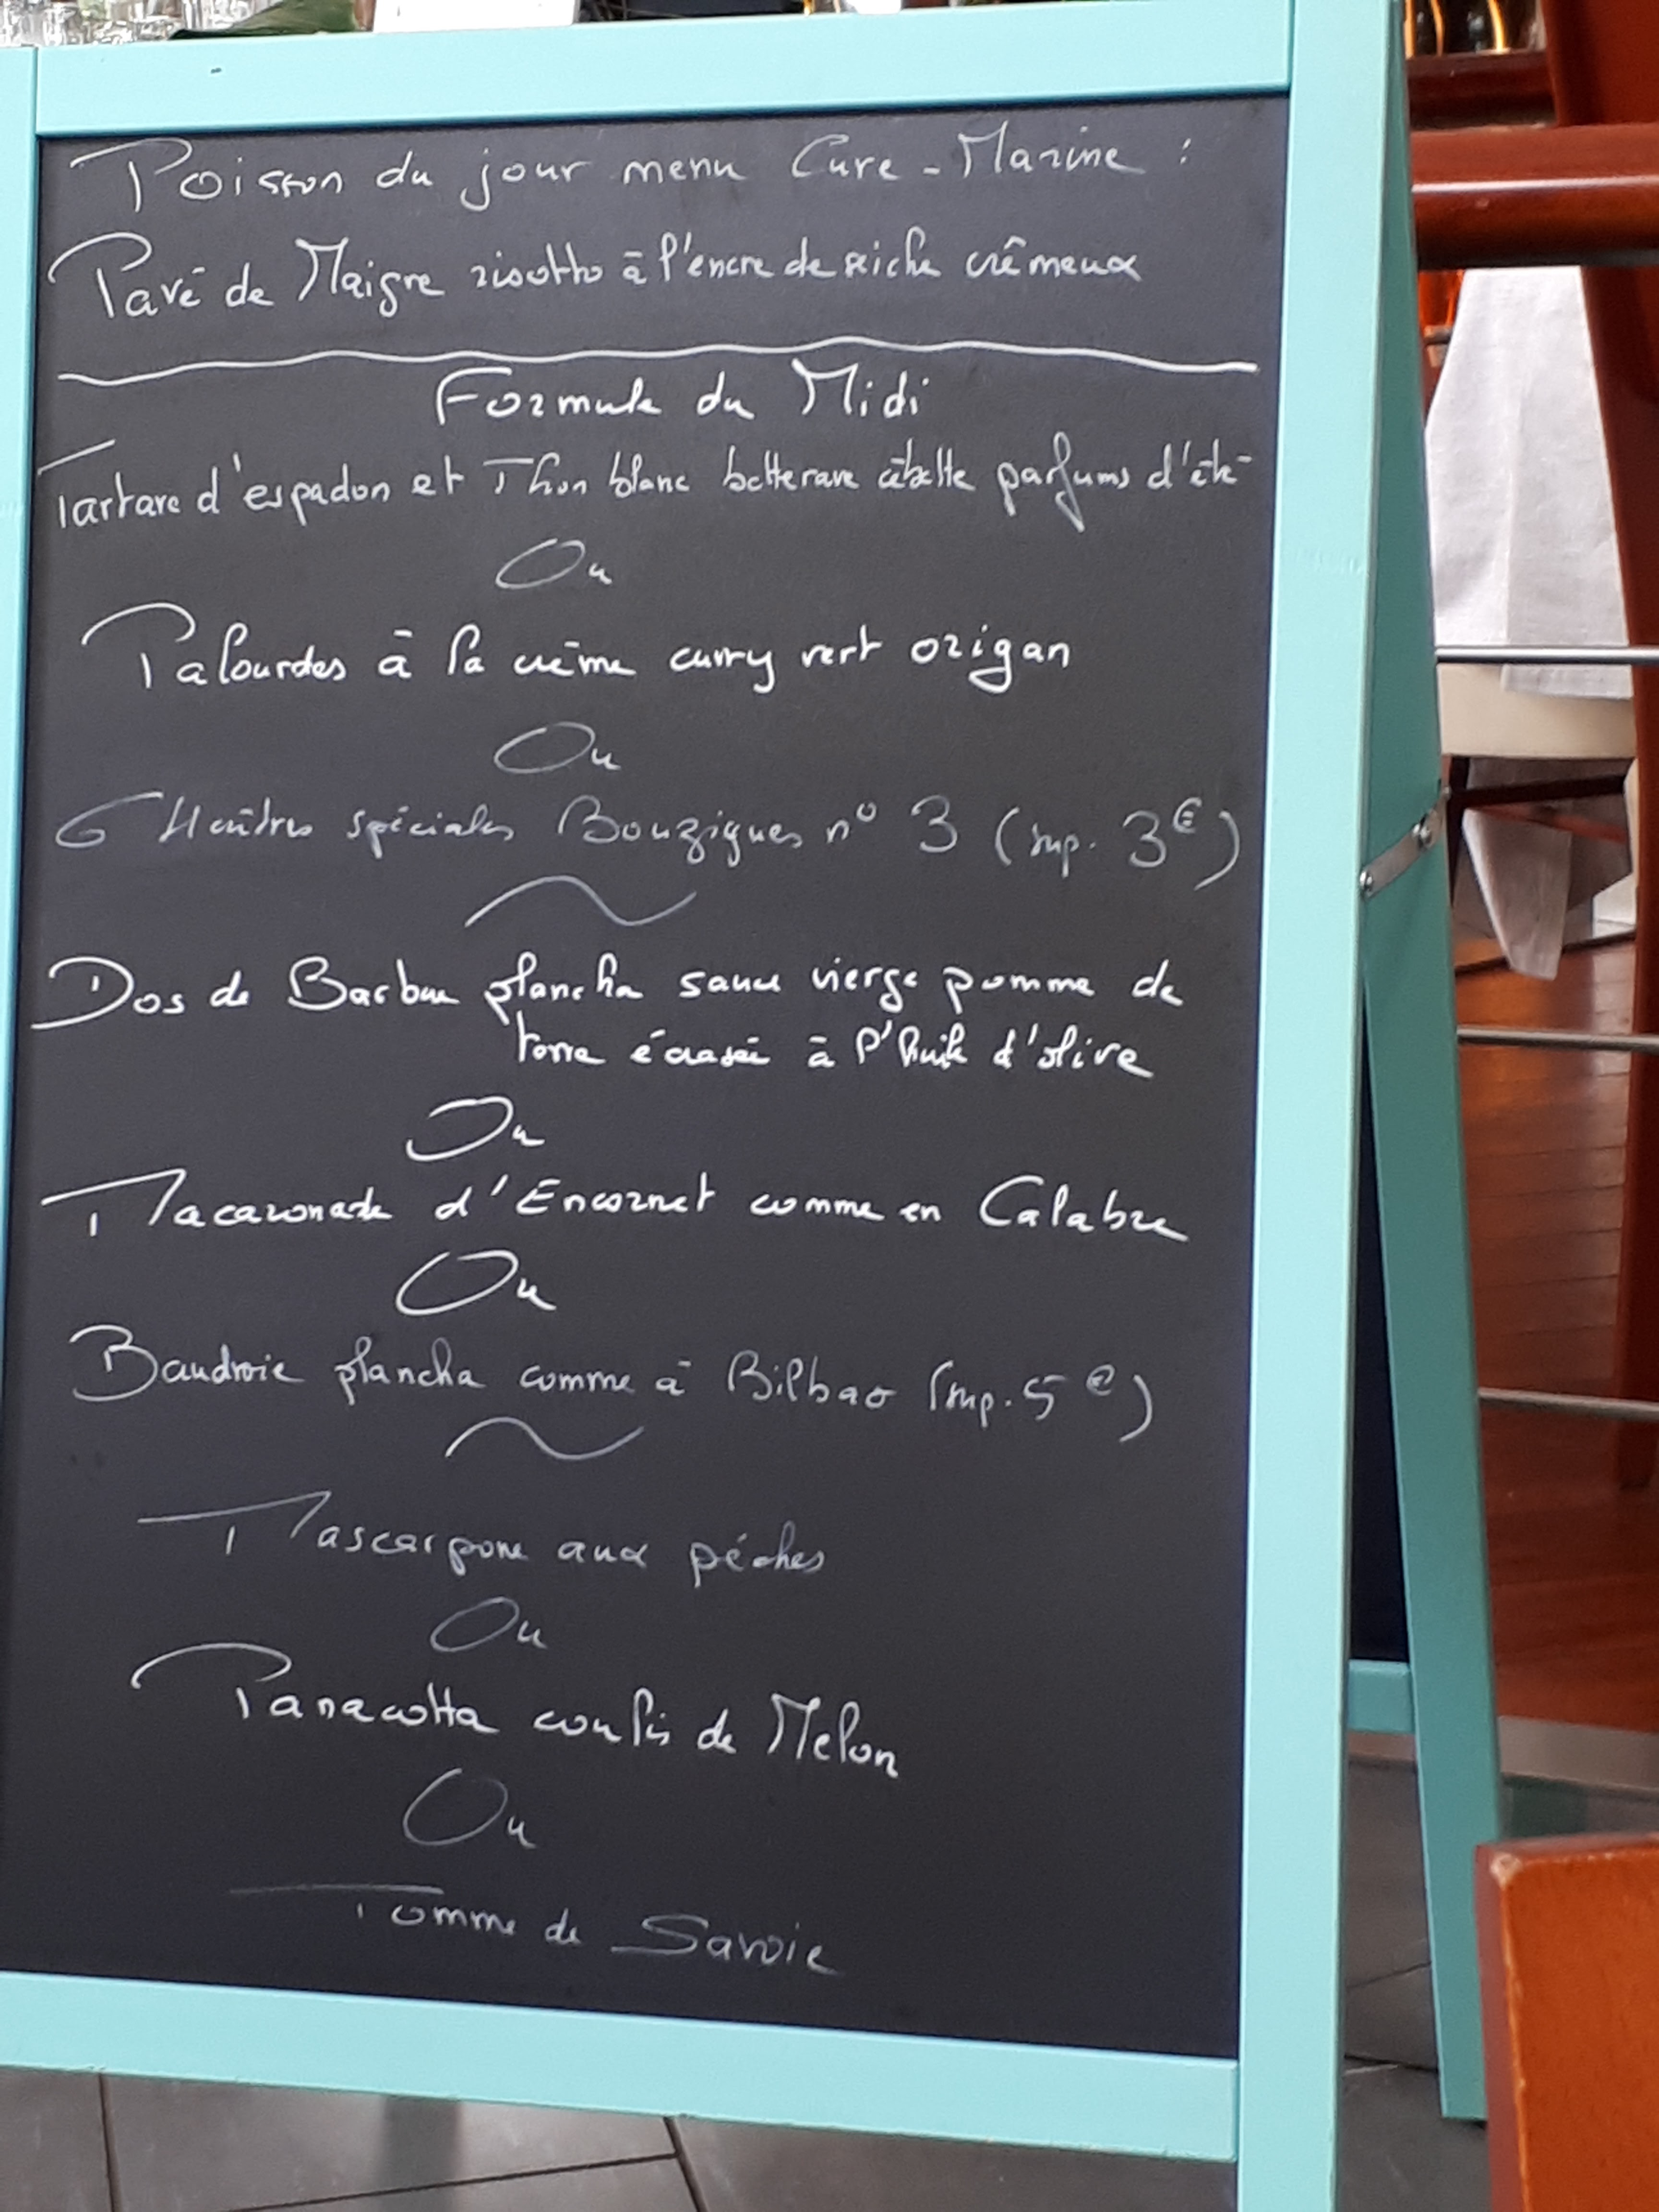 Poisson du jour menu Cure-Marine :
Pavé de Maigre risotto à l'encre de seiche crêmeux
Formule du Midi
Tartare d'espadon et Thon blanc betterave cébette parfums d'été
Ou
Palourdes à la crème curry vert origan
Ou
6 Huîtres spéciales Bouzigues n° 3 (sup. 3€)
Dos de Barbue plancha sauce vierge pomme de
terre écrasée à l'huile d'olive
Ou
Macaronade d'Encornet comme en Calabre
Ou
Baudroie plancha comme à Bilbao (sup. 5€)
Mascarpone aux pêches
Ou
Panacotta coulis de Melon
Ou
Tomme de Savoie